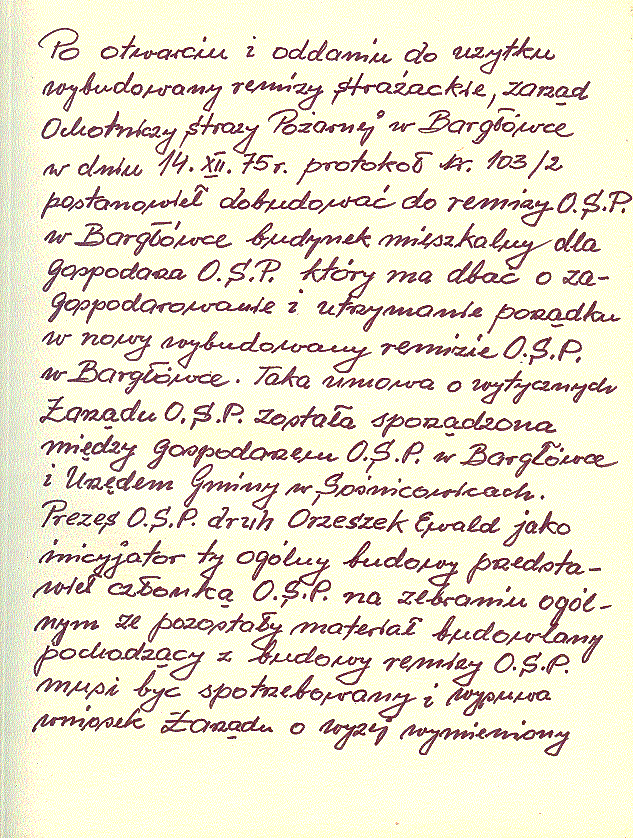 Po otwarciu i oddaniu do uzytku
wybudowany remizy strażackie, zarząd
Ochotniczy straży Pożarnej w Bargłówce
w dniu 14. XII. 75 r. protokoł Nr. 103/2
postanowieł dobudować do remizy O.S.P.
w Bargłówce budynek mieszkalny dla
gospodaza O.S.P. który ma dbać o za-
gospodarowanie i utrzymanie porządku
w nowy wybudowany remizie O.S.P.
w Bargłówce. Taka umowa o wytycznych
Zarządu O.S.P. została sporządzona
między gospodarzem O.S.P. w Bargłówce
i Urzędem Gminy w Sośnicowicach.
Prezes O.S.P. druh Orzeszek Ewald jako
inicyjator ty ogólny budowy przedsta-
wieł członką O.S.P. na zebraniu ogól-
nym ze pozostały materiał budowlany
pochodzący z budowy remizy O.S.P.
musi być spotrzebowany i wysuwa
wniosek Zarządu o wyzej wymieniony